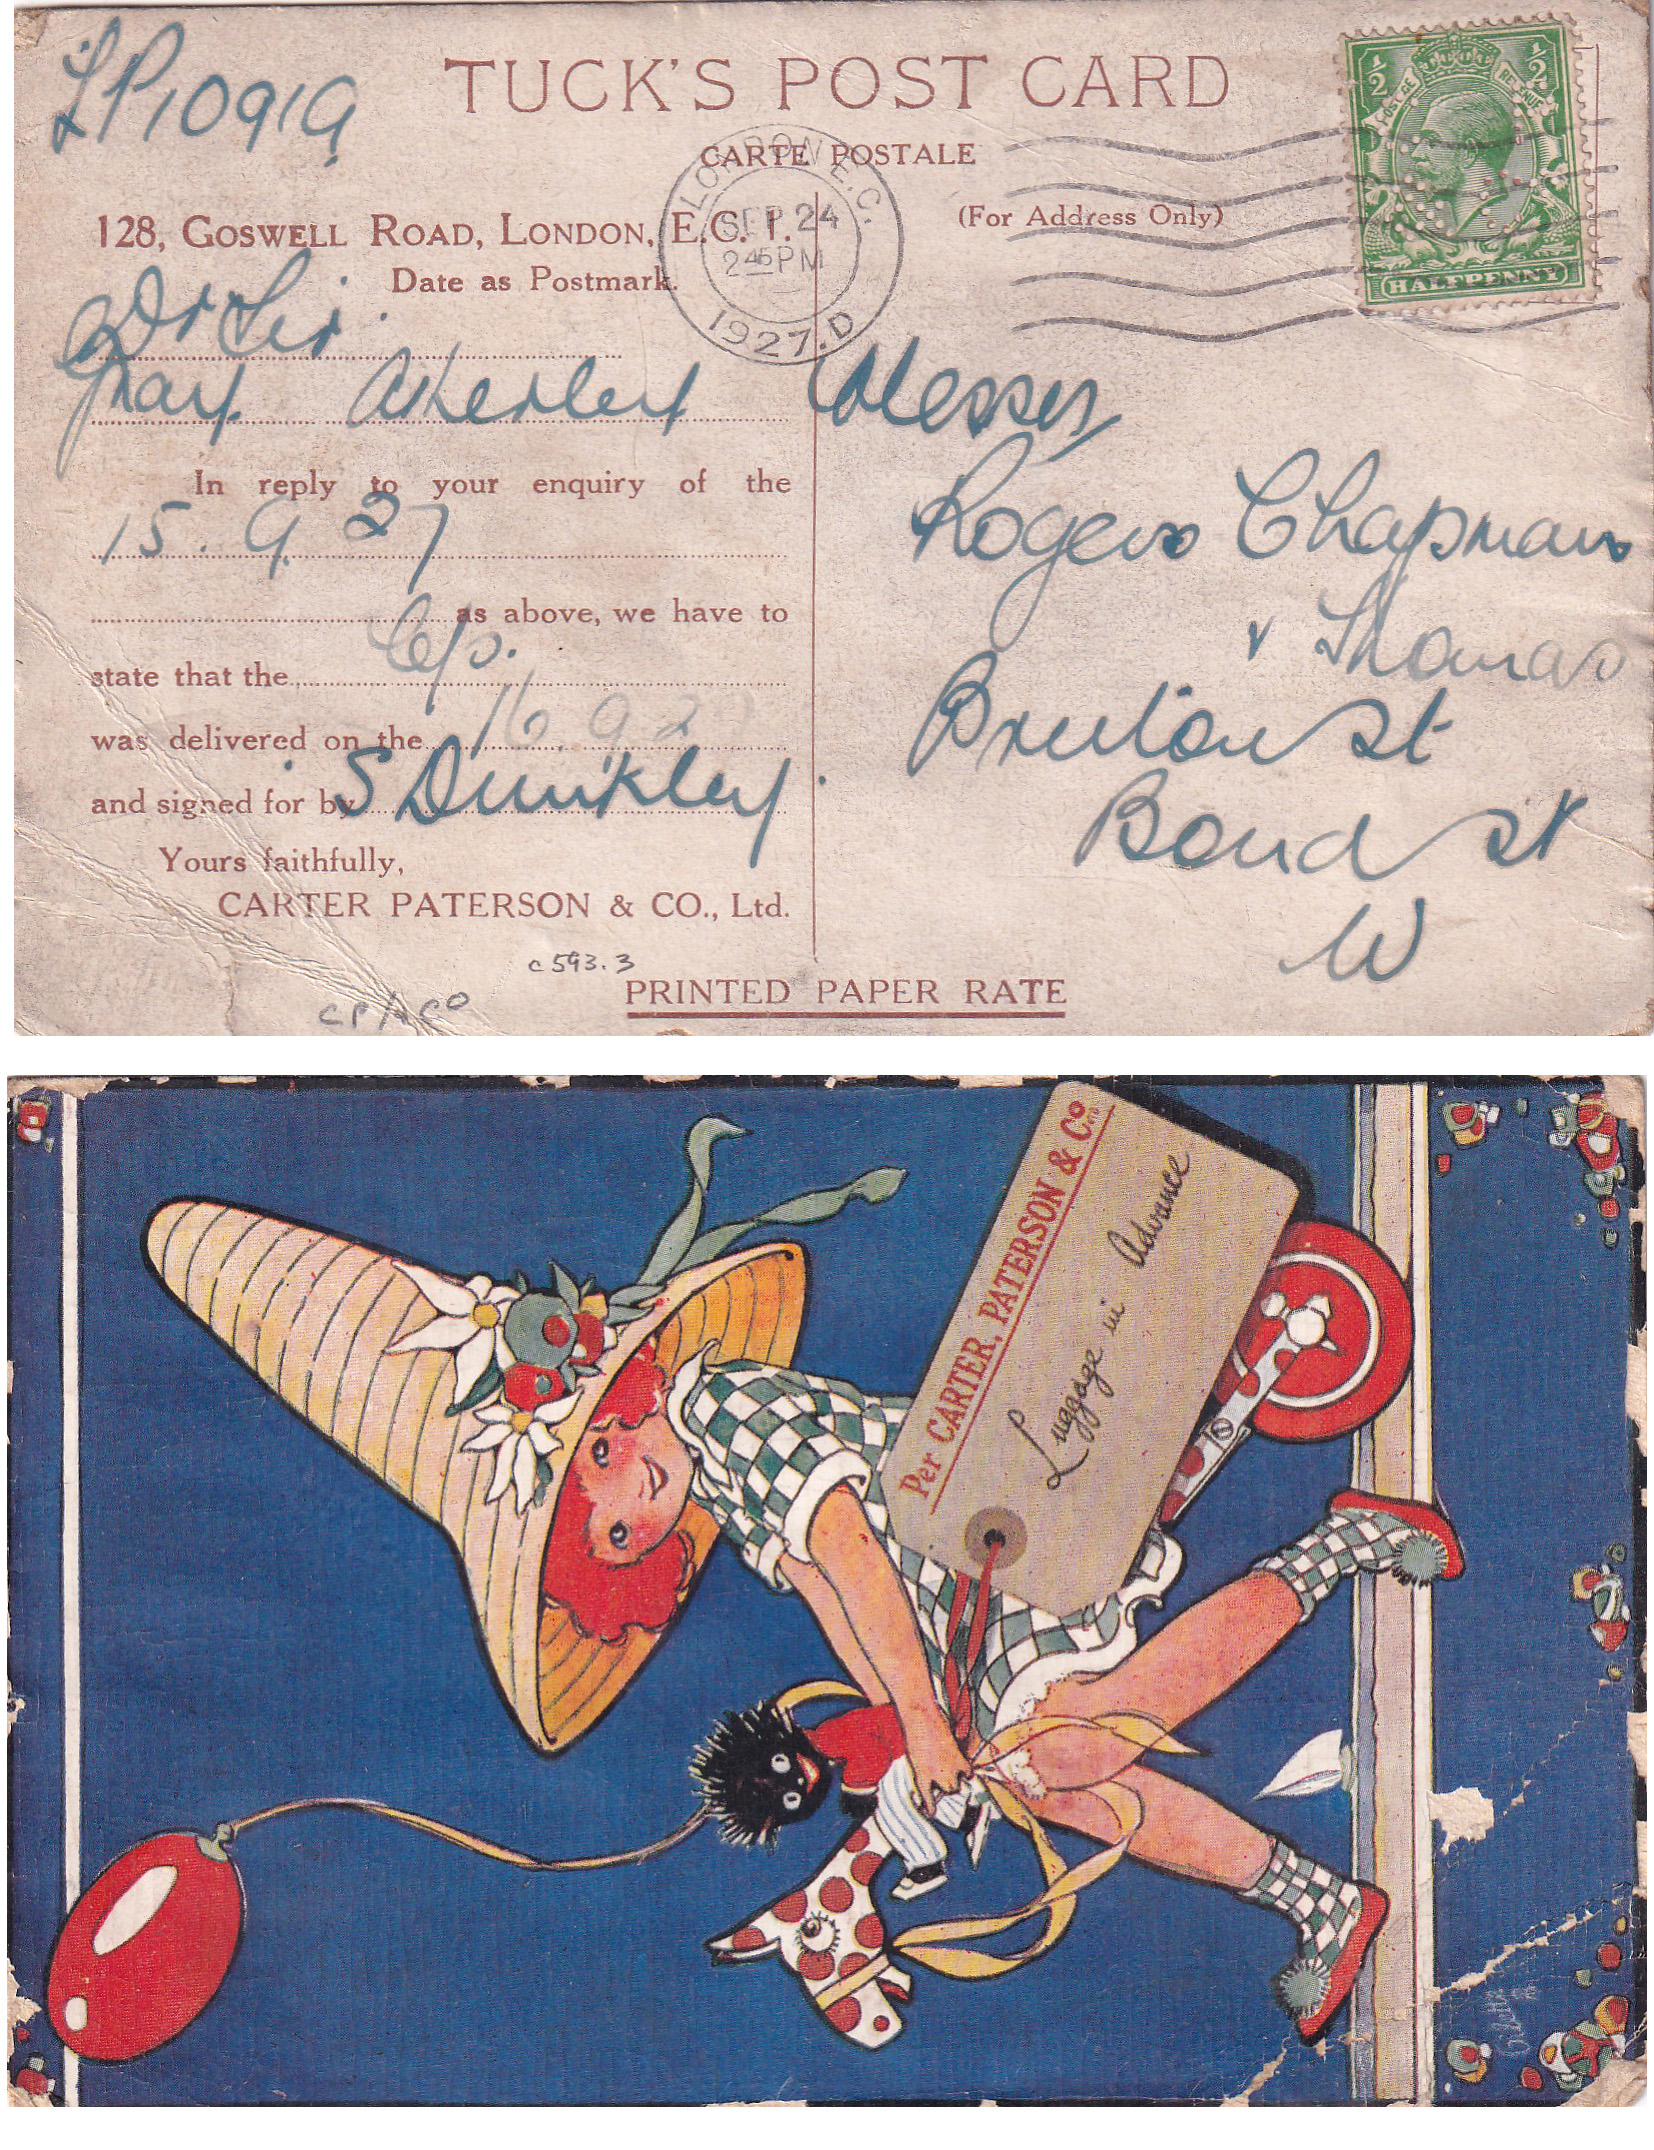 LP10919
TUCK'S POST CARD
CARTE POSTALE
(For Address Only)
128, GOSWELL ROAD, LONDON, E.C. 1.
Date as Postmark.
LONDON. E.C.
SEP 24
2 45 PM
1927. D
½ POSTAGE REVENUE ½
HALFPENNY
Dr Sir.
In reply to your enquiry of the
15.9.27
as above, we have to
state that the C/s.
was delivered on the 16.9.27
and signed for by S Dunkley.
Yours faithfully,
CARTER PATERSON & CO., Ltd.
c593.3
PRINTED PAPER RATE
Messrs
Rogers Chapman
& Thomas
Bruton St
Bond St
W
Per CARTER, PATERSON & Co LTD
Luggage in Advance